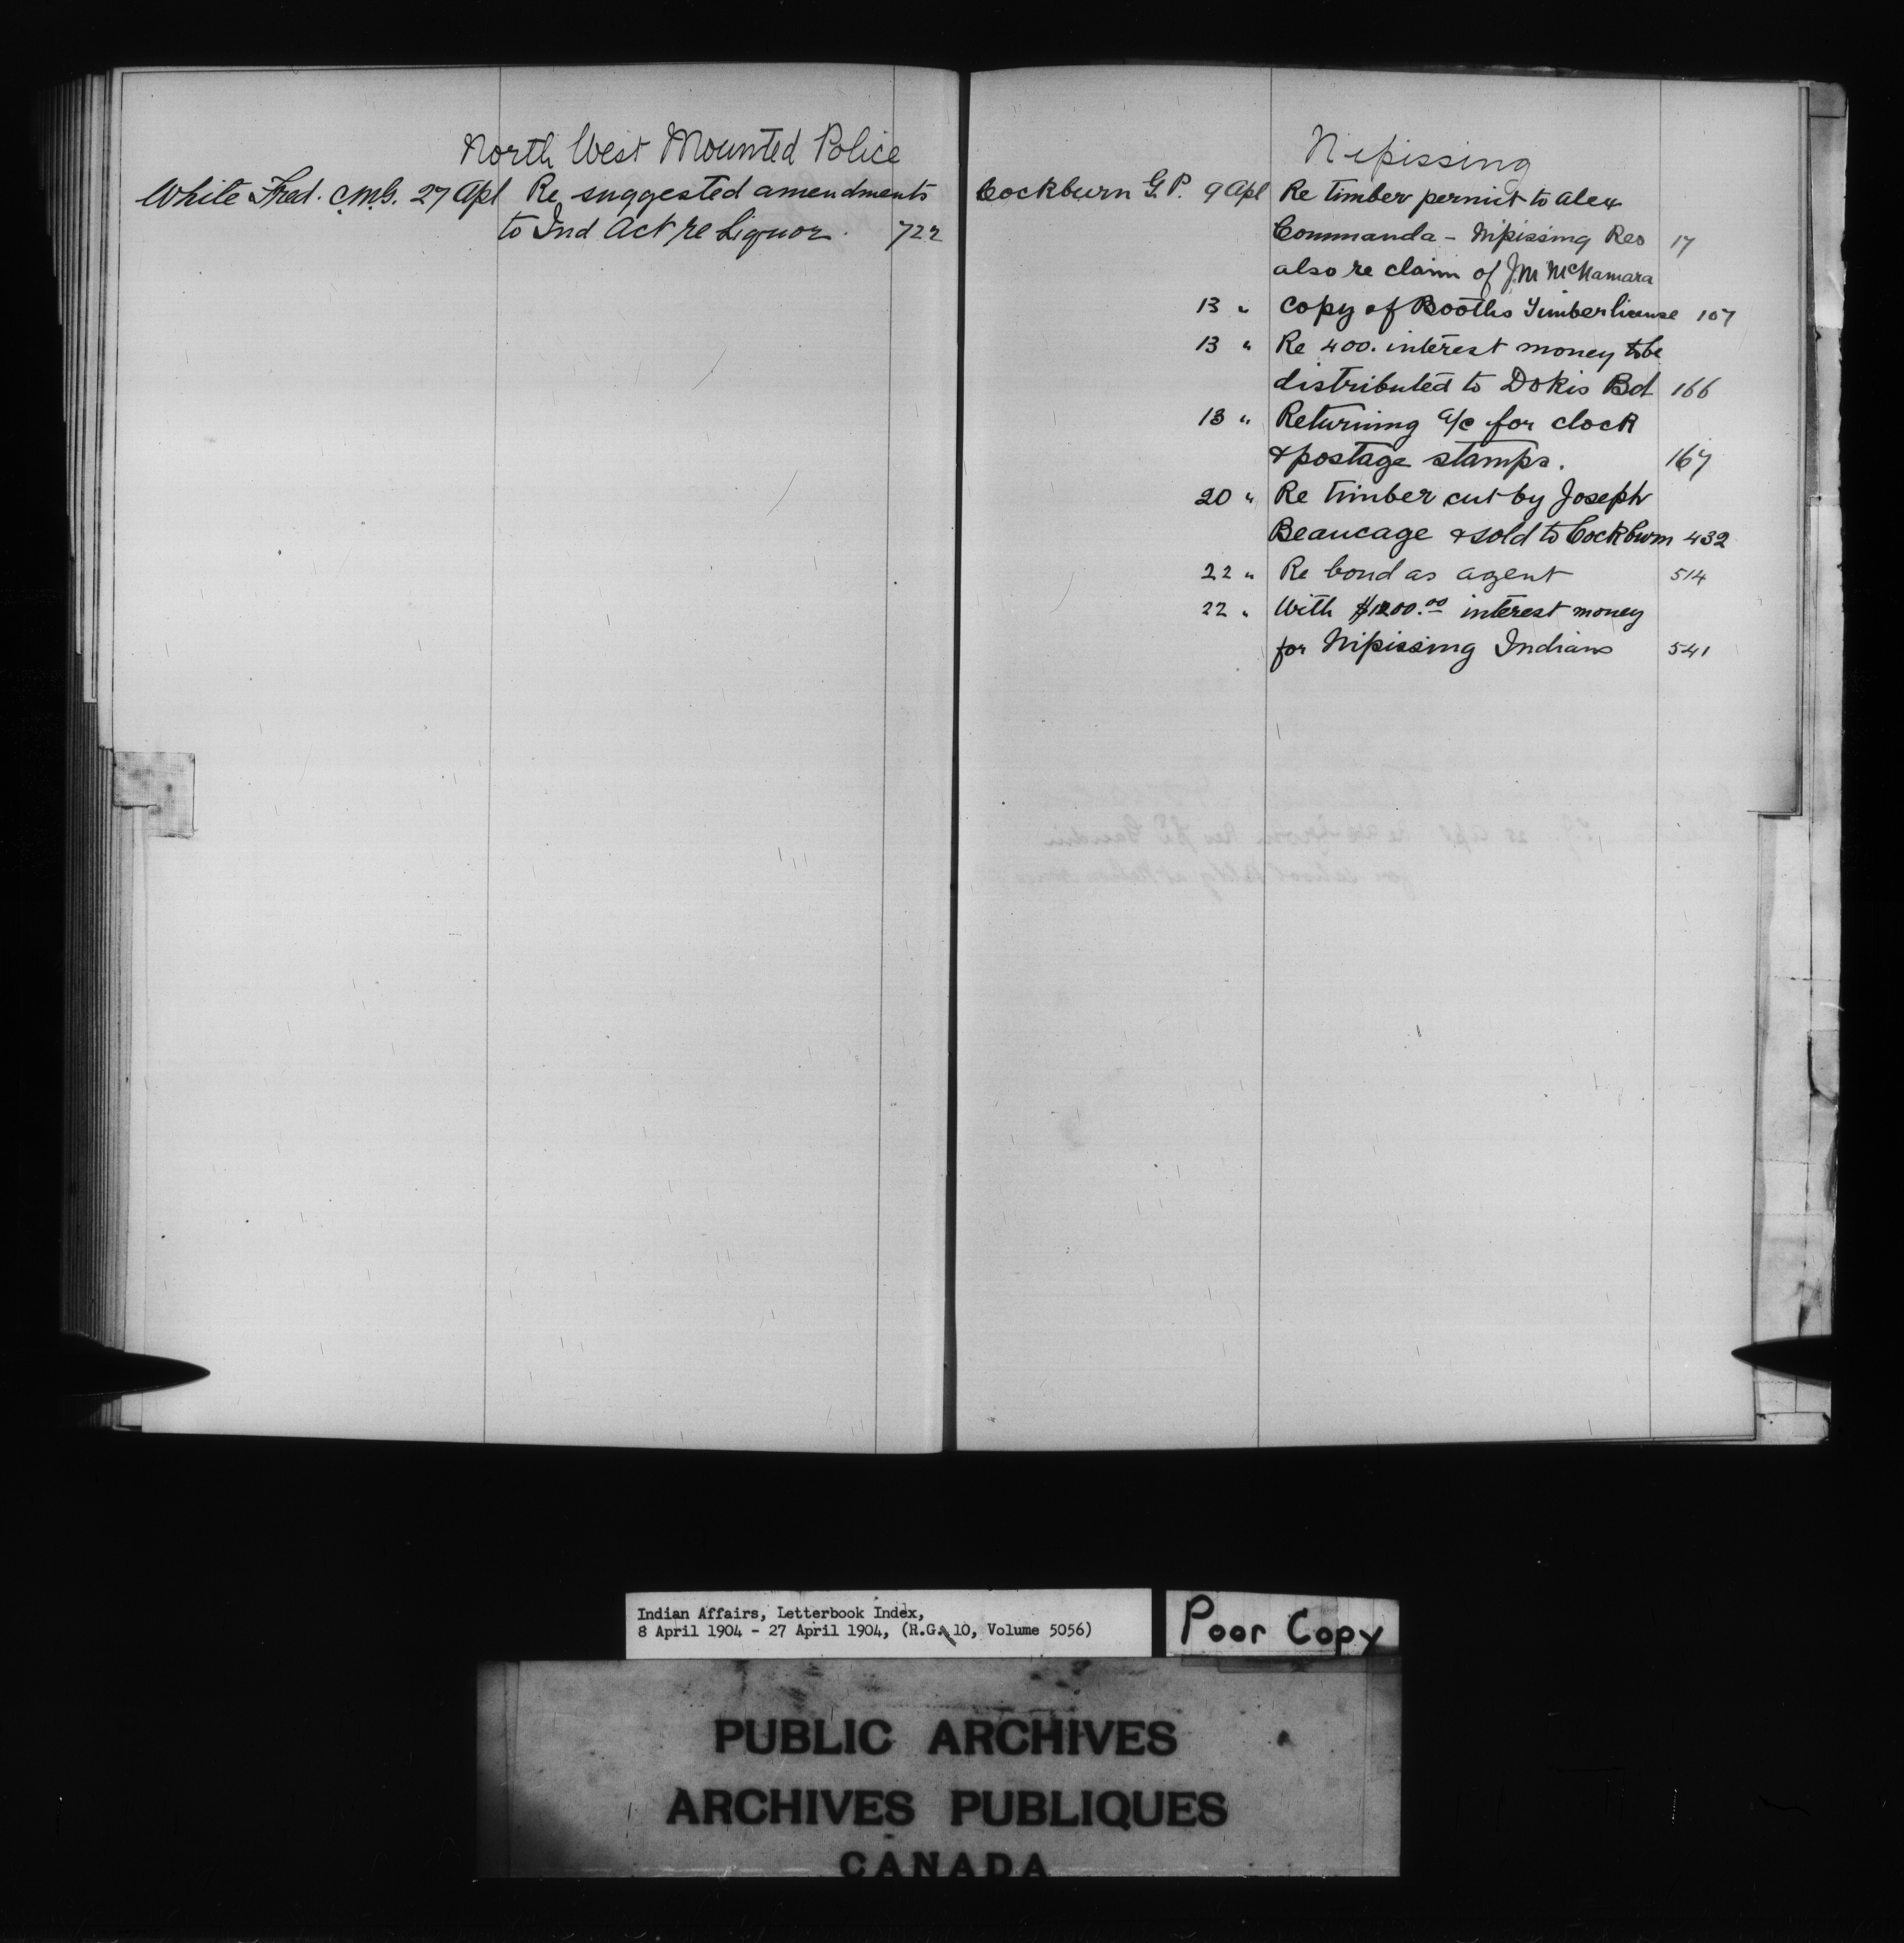 North West Mounted Police
White Fred. C.M.G. 27 Apl Re suggested amendments
to Ind Act re Liquor. 722
Nipissing
Cockburn G.P. 9 Apl Re timber permit to Alex
Commanda - Nipissing Res 17
also re claim of J.M McNamara
13 " Copy of Booths Timber license 107
13 " Re 400. interest money to be
distributed to Dokis Bd 166
13 " Returning a/c for clock
& postage stamps. 167
20 " Re timber cut by Joseph
Beaucage & sold to Cockburn 432
22 " Re bond as agent 514
22 " With $1200.00 interest money
for Nipissing Indians 541
Indian Affairs, Letterbook Index,
8 April 1904 - 27 April 1904, (R.G. 10, Volume 5056)
Poor Copy
PUBLIC ARCHIVES
ARCHIVES PUBLIQUES
CANADA